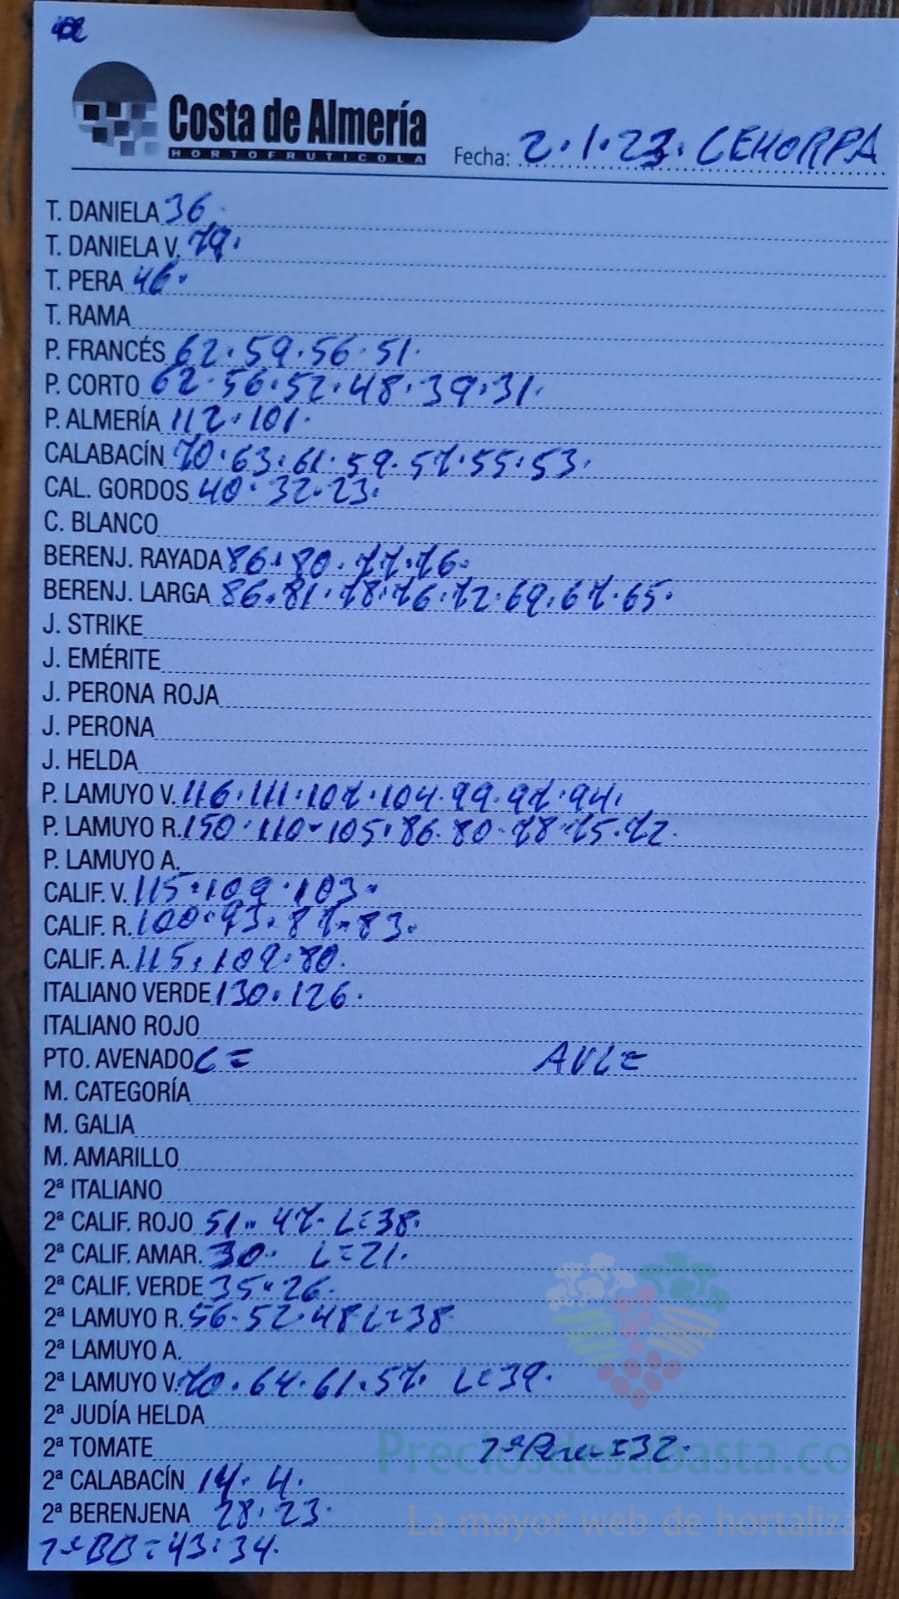 Costa de Almería
HORTOFRUTICOLA
Fecha: 2.1.23. CEHORPA
T. DANIELA 36.
T. DANIELA V. 79.
T. PERA 46.
T. RAMA
P. FRANCÉS 62.59.56.51.
P. CORTO 62.56.52.48.39.31.
P. ALMERÍA 112.101.
CALABACÍN 70.63.61.59.57.55.53.
CAL. GORDOS 40.32.23.
C. BLANCO
BERENJ. RAYADA 86.80.77.76.
BERENJ. LARGA 86.81.78.76.72.69.67.65.
J. STRIKE
J. EMÉRITE
J. PERONA ROJA
J. PERONA
J. HELDA
P. LAMUYO V. 116.111.107.104.99.97.94.
P. LAMUYO R. 150.110.105.86.80.78.75.72.
P. LAMUYO A.
CALIF. V. 115.109.103.
CALIF. R. 100.93.87.83.
CALIF. A. 115.109.80.
ITALIANO VERDE 130.126.
ITALIANO ROJO
PTO. AVENADO C= AVL=
M. CATEGORÍA
M. GALIA
M. AMARILLO
2ª ITALIANO
2ª CALIF. ROJO 51.47. L=38.
2ª CALIF. AMAR. 30. L=21.
2ª CALIF. VERDE 35.26.
2ª LAMUYO R. 56.52.48 L=38
2ª LAMUYO A.
2ª LAMUYO V. 70.64.61.57. L=39.
2ª JUDÍA HELDA
2ª TOMATE 2ª Pera=32.
2ª CALABACÍN 14.4.
2ª BERENJENA 28.23
2ª BB=43.34.
Preciosdesubasta.com
La mayor web de hortalizas